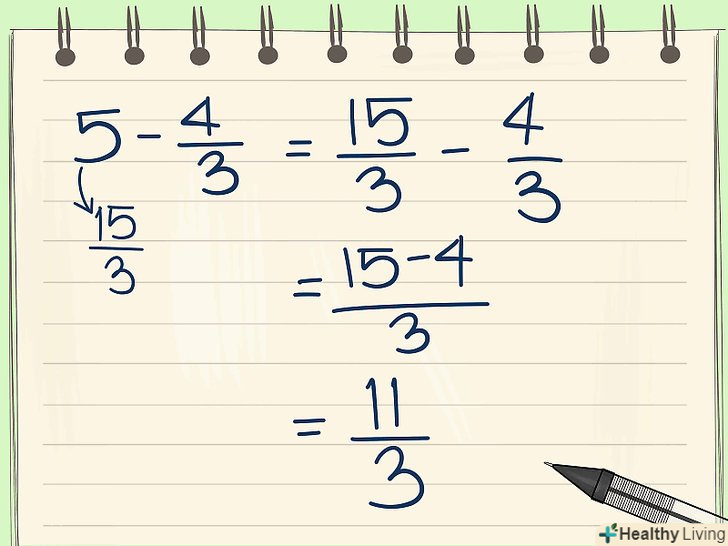 5 - 4/3 = 15/3 - 4/3
15/3
= 15-4/3
= 11/3
Healthy Living